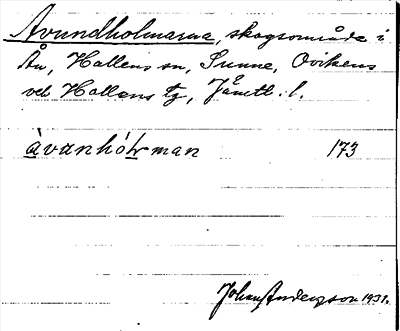 Avundholmarna, skogsområde i
Ån, Hallens sn, Sunne, Ovikens
och Hallens tg, Jämtl. l.
ávanhólman 173
Johan Anderzson 1931.